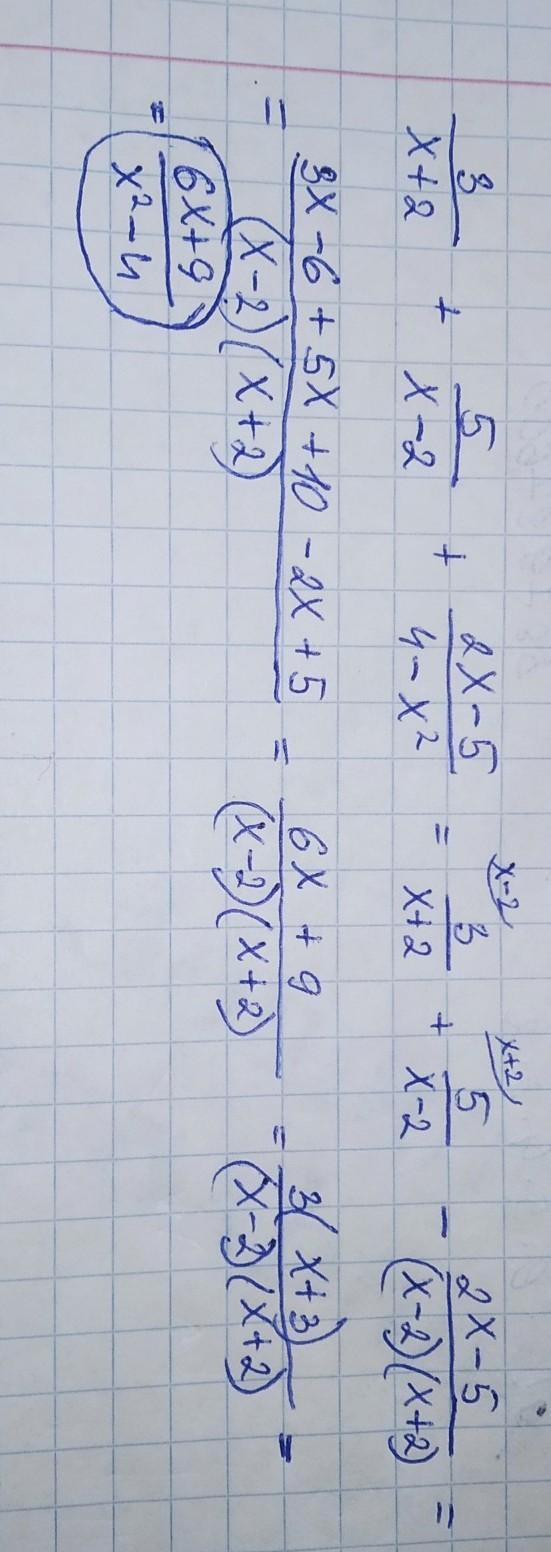 3/(x+2) + 5/(x-2) + (2x-5)/(4-x²) = 3/(x+2) (x-2 + 5/(x-2) (x+2 - (2x-5)/((x-2)(x+2)) =
= (3x-6+5x+10-2x+5)/((x-2)(x+2)) = (6x+9)/((x-2)(x+2)) = 3(x+3)/((x-2)(x+2)) =
= (6x+9)/(x²-4)